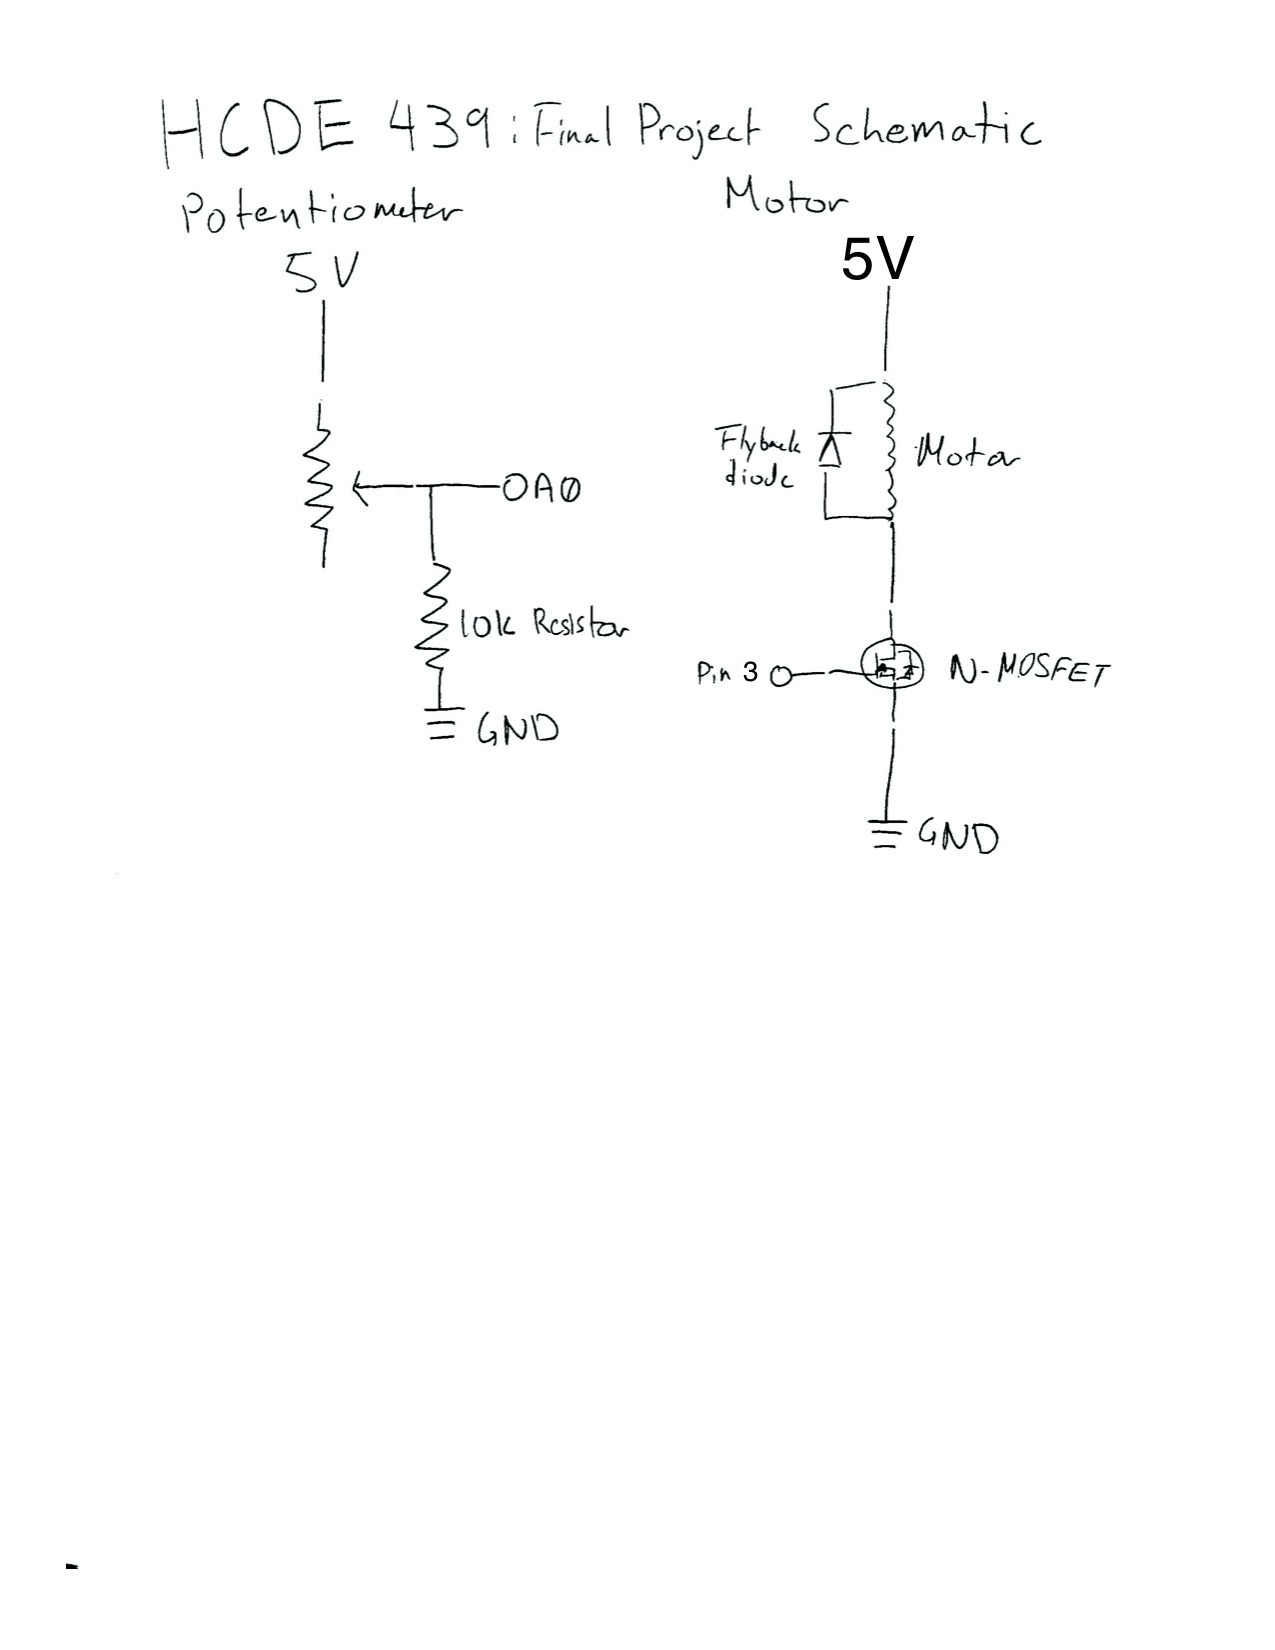 HCDE 439: Final Project Schematic
Potentiometer
5V
OA0
10k Resistor
GND
Motor
5V
Flyback
diode
Motor
Pin 3
N-MOSFET
GND